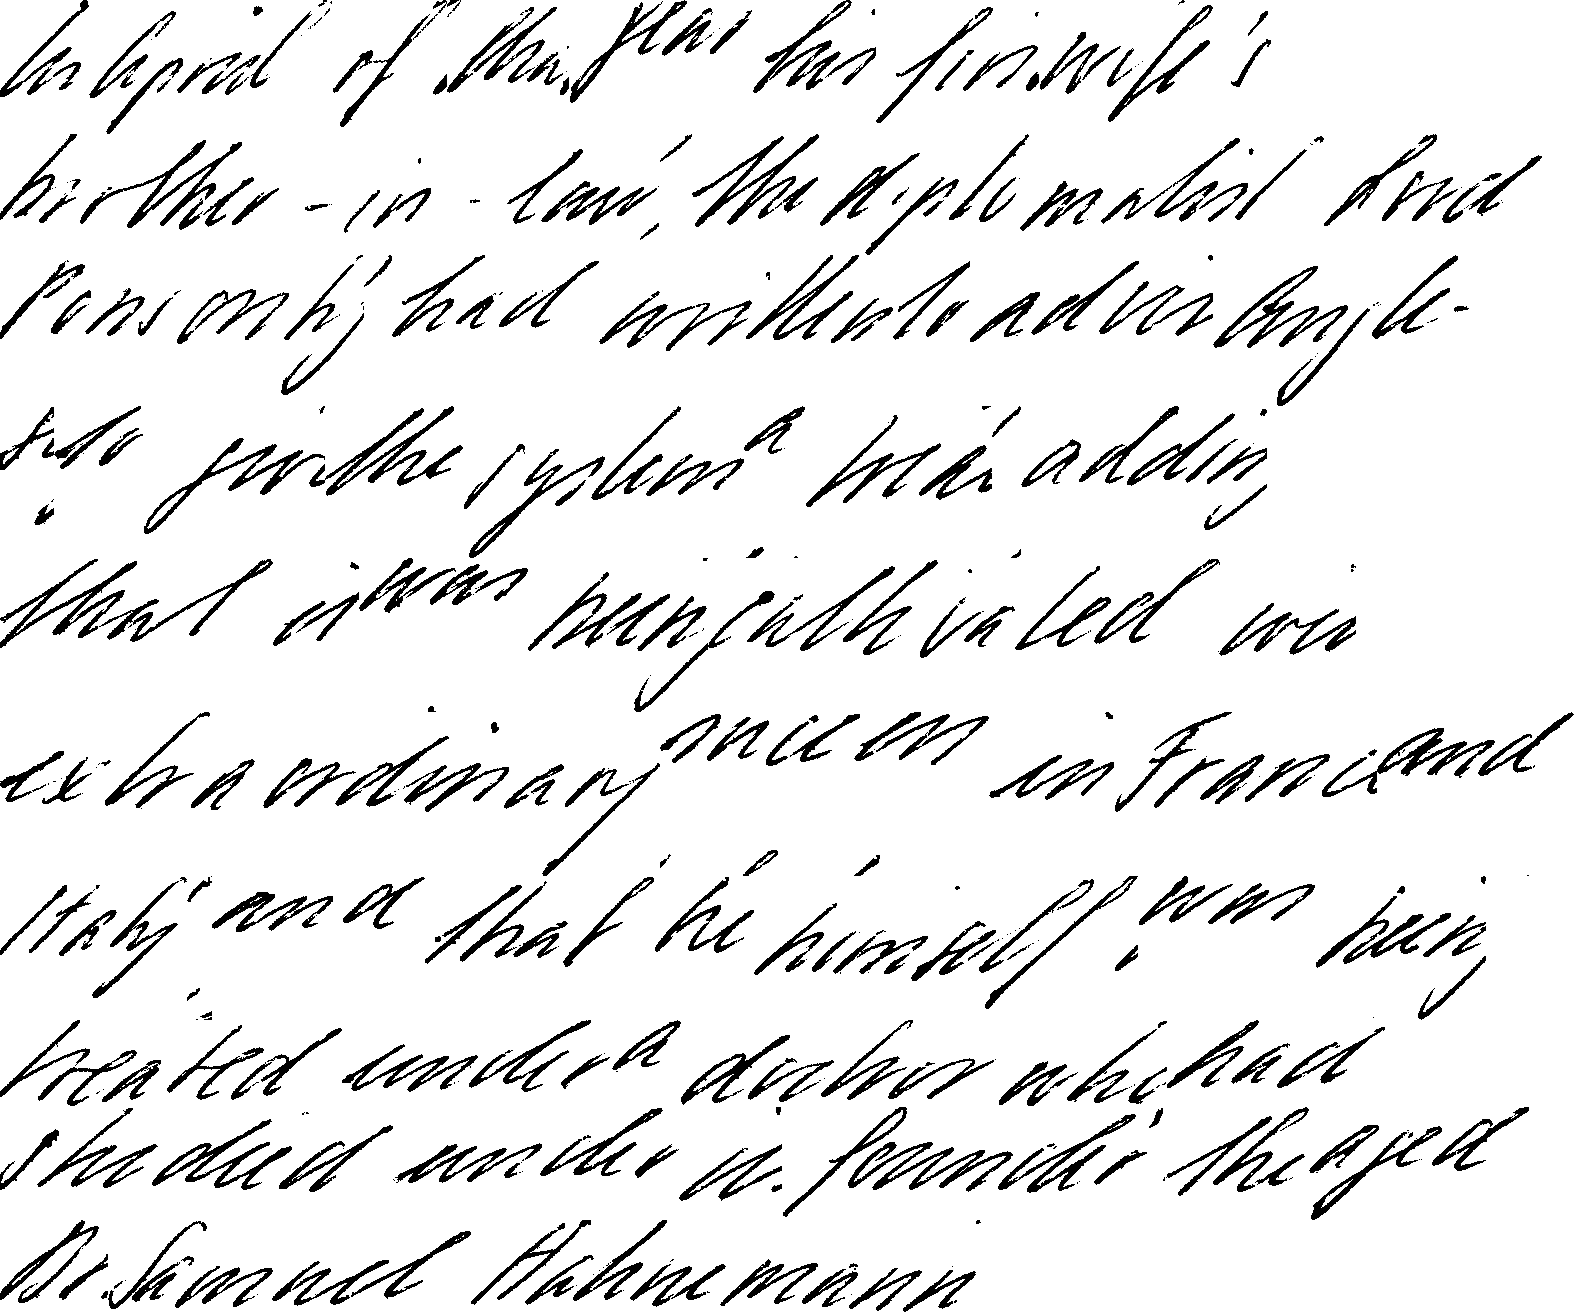 In April of that year his first wife's
brother-in-law, the diplomatist Lord
Ponsonby had written to advise Angle-
sey to give the system a trial adding
that it was being cultivated with
extraordinary success in France and
Italy and that he himself was being
treated under a doctor who had
studied under its founder the aged
Dr Samuel Hahnemann